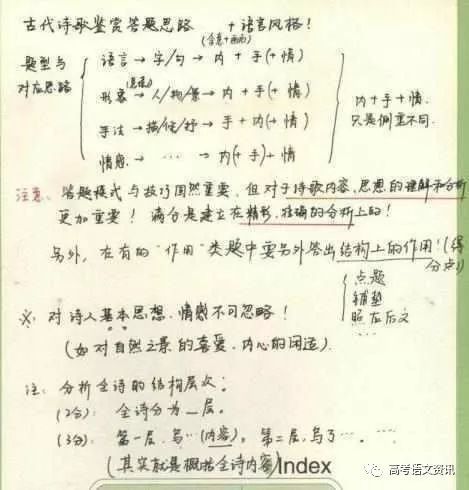 古代诗歌鉴赏答题思路 + 语言风格！
(含意+画面)
题型与
对应思路
语言 → 字/句 → 内 + 手(+情)
形象 → 人/物/景 → 内 + 手(+情)
手法 → 描/修/抒 → 手 + 内(+情)
情感 → … → 内(+手)+情
内+手+情.
只是侧重不同.
注意: 答题模式与技巧固然重要, 但对于诗歌内容、思想的理解和分析
更加重要！满分是建立在精彩、准确的分析上的！
另外, 在有的"作用"类题中要另外答出结构上的作用！(得
分点)
点题
铺垫
照应后文
…
※ 对诗人基本思想、情感不可忽略！
(如对自然之景的喜爱、内心的闲适).
注: 分析全诗的结构层次:
(2分): 全诗分为_层。
(3分): 第一层, 写…(内容)。第二层, 写了… . ….
(其实就是概括全诗内容)
Index
高考语文资讯